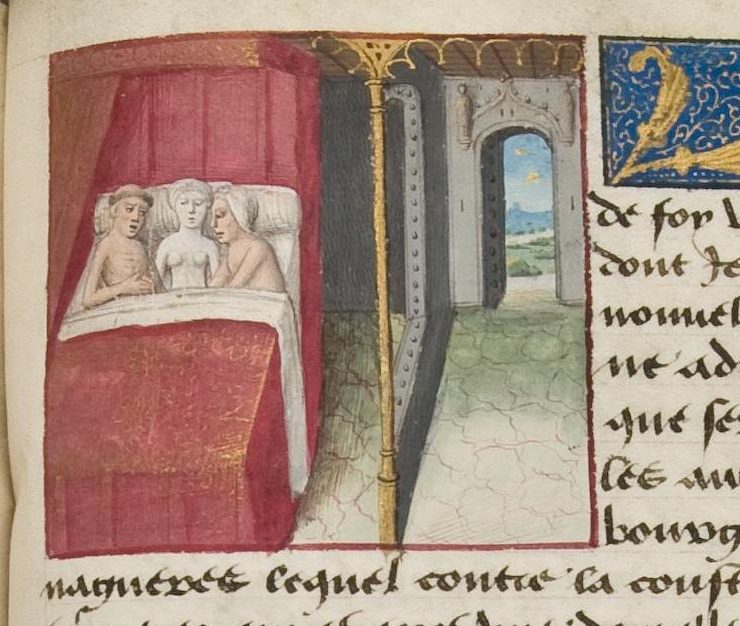 de foy
dont Je
nouuel
ne ad
que se
les au
bourg
nagueres lequel contre la coust